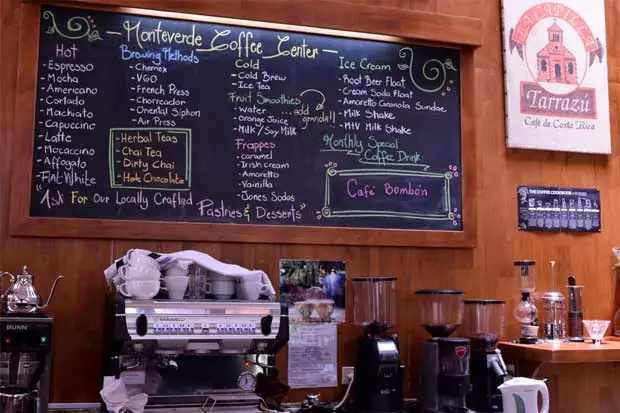 Monteverde Coffee Center
Hot
- Espresso
- Mocha
- Americano
- Cortado
- Machiato
- Capuccino
- Latte
- Mocaccino
- Affogato
- Flat White
Brewing Methods
- Chemex
- V60
- French Press
- Chorreador
- Oriental Siphon
- Air Press
- Herbal Teas
- Chai Tea
- Dirty Chai
- Hot Chocolate
Cold
- Cold Brew
- Ice Tea
Fruit Smoothies
- Water
- Orange Juice
- Milk / Soy Milk
Add granola!!
Frappes
- caramel
- Irish cream
- Amaretto
- Vainilla
- Jones Sodas
Ice Cream
- Root Beer Float
- Cream Soda Float
- Amaretto Granola Sundae
- Milk Shake
- MTV Milk Shake
Monthly Special
Coffee Drink:
Café Bombón
"Ask For Our Locally Crafted Pastries & Desserts"
LA CAPILLA
Tarrazú
Café de Costa Rica
THE COFFEE COOKBOOK
BUNN